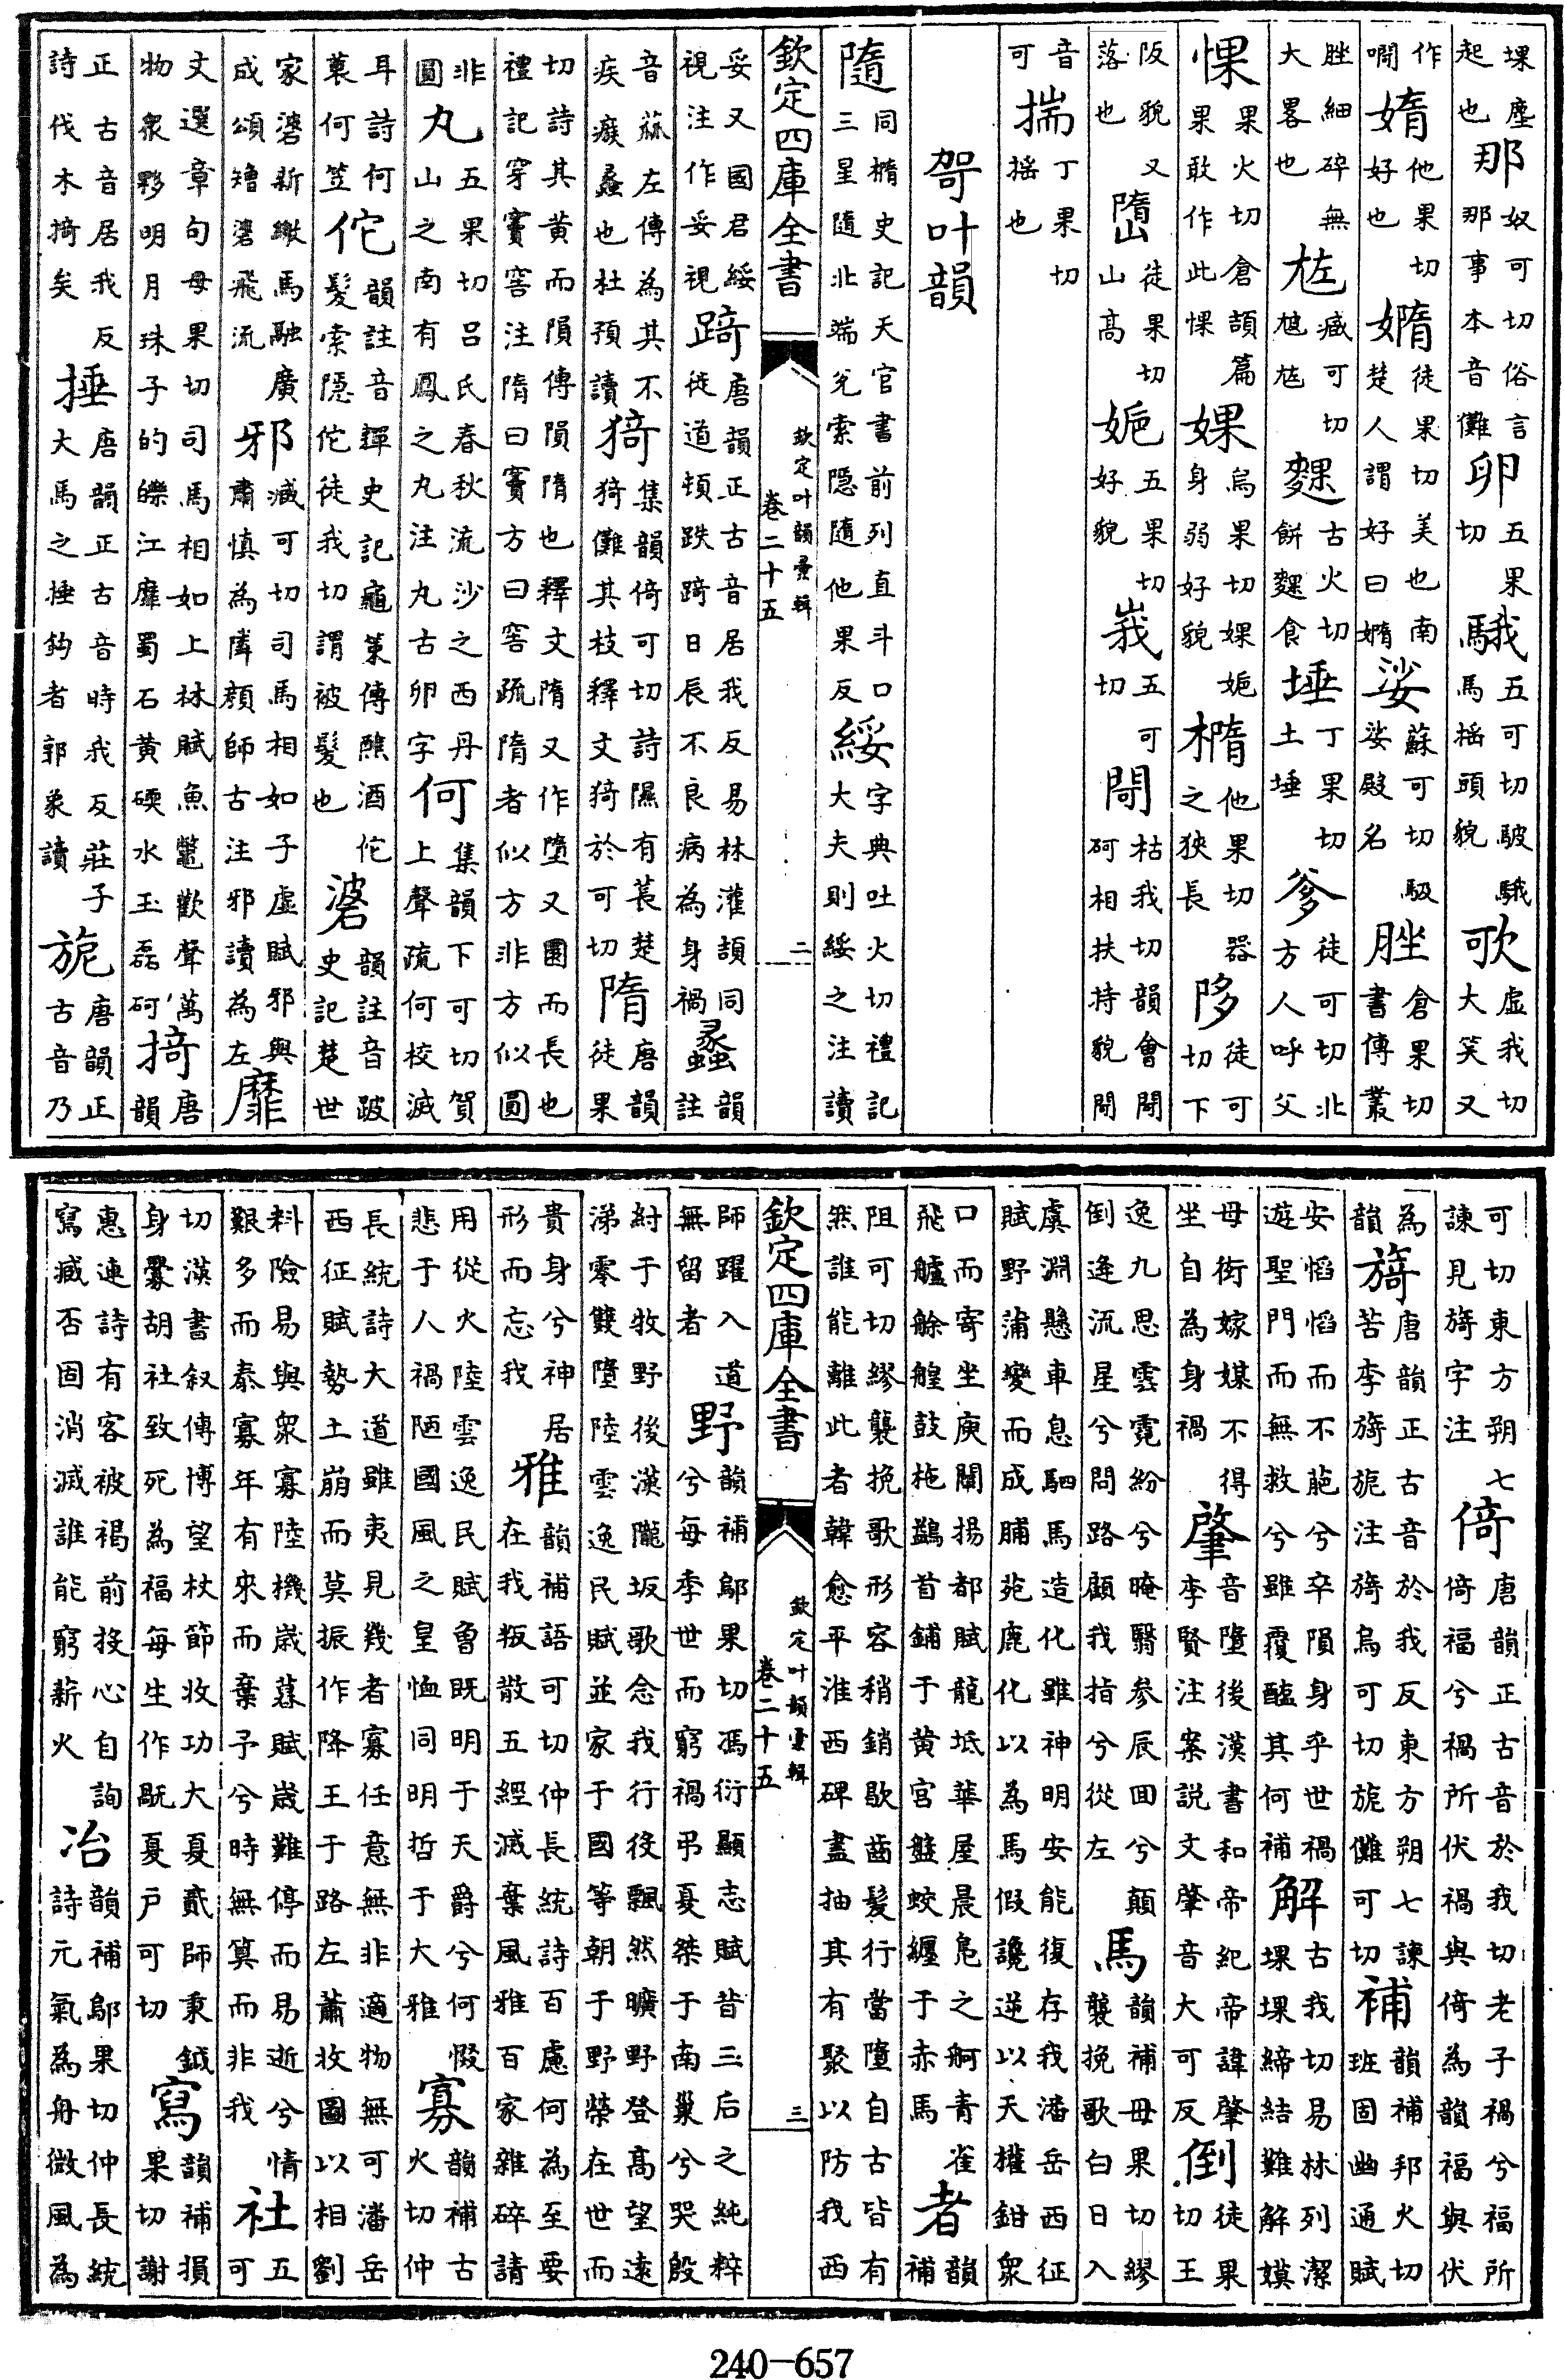 堁塵起也那奴可切俗言那事本音儺卵五果切騀五可切駊騀馬摇頭貌歌虚我切大笑又
作媠他果切好也嫷徒果切美也南楚人謂好曰嫷娑蘇可切馺娑殿名脞倉果切書傳叢
脞細碎無大畧也臧可切麶古火切餅麶食埵丁果切土埵爹徒可切北方人呼父
惈果火切倉頡篇果敢作此惈婐烏果切婐姽身弱好貌橢他果切器之狹長陊徒可切下
阪貌又落也嶞徒果切山高姽五果切好貌峩五可切閜枯我切韻會閜砢相扶持貌閜
音可揣丁果切摇也
哿叶韻
隨同橢史記天官書前列直斗口三星隨北端兌索隱隨他果反綏字典吐火切禮記大夫則綏之注讀
欽定四庫全書 欽定叶韻彙輯 卷二十五 二
妥又國君綏視注作妥視踦唐韻正古音居我反易林灌頡同徒道頓跌踦日辰不良病為身禍蠡韻註
音蓏左傳為其不疾瘯蠡也杜預讀猗集韻倚可切詩隰有萇楚猗儺其枝釋文猗於可切隋唐韻徒果
切詩其黄而隕傳隕隋也釋文隋又作墮又圍而長也禮記穿竇窖注隋曰竇方曰窖疏隋者似方非方似圓
非圓丸五果切吕氏春秋流沙之西丹山之南有鳳之丸注丸古卵字何集韻下可切賀上聲疏何校滅
耳詩何蓑何笠佗韻註音墠史記龜策傳醮酒佗髮索隱佗徒我切謂被髮也碆韻註音跛史記楚世
家碆新繳馬融廣成頌矰碆飛流邪臧可切司馬相如子虚賦邪與肅慎為鄰顏師古注邪讀為左靡
文選章句母果切司馬相如上林賦魚鼈歡聲萬物衆夥明月珠子的皪江靡蜀石黄碝水玉磊砢掎唐韻
正古音居我反詩伐木掎矣捶唐韻正古音時我反莊子大馬之捶鈎者郭象讀旎唐韻正古音乃
可切東方朔七諫見旖字注倚唐韻正古音於我切老子禍兮福所倚福兮禍所伏禍與倚為韻福與伏
為韻旖唐韻正古音於我反東方朔七諫苦李旖旎注旖烏可切旎儺可切補韻補邦火切班固幽通賦
安慆慆而不葩兮卒隕身乎世禍遊聖門而無救兮雖覆醢其何補解古我切易林列潔堁堁締結難解嫫
母衒嫁媒不得坐自為身禍肈音墮後漢書和帝紀帝諱肈李賢注案説文肈音大可反倒徒果切王
逸九思雲霓紛兮晻翳参辰回兮顛倒逢流星兮問路顧我指兮從左馬韻補母果切繆襲挽歌白日入
虞淵懸車息駟馬造化雖神明安能復存我潘岳西征賦野蒲變而成脯苑鹿化以為馬假讒逆以天權鉗衆
口而寄坐庾闡揚都賦龍坻華屋晨凫之舸青雀飛艫艅艎鼓柂鷁首鋪于黄宫盤蛟纏于赤馬者韻補
阻可切繆襲挽歌形容稍銷歇齒髮行當墮自古皆有然誰能離此者韓愈平淮西碑盡抽其有聚以防我西
欽定四庫全書 欽定叶韻彙輯 卷二十五 三
師躍入道無留者野韻補鄔果切馮衍顯志賦昔三后之純粹兮每季世而窮禍弔夏桀于南巢兮哭殷
紂于牧野後漢隴坂歌念我行役飄然曠野登高望遠涕零雙墮陸雲逸民賦並家于國等朝于野榮在世而
貴身兮神居形而忘我雅韻補語可切仲長統詩百慮何為至要在我叛散五經滅棄風雅百家雜碎請
用從火陸雲逸民賦魯既明于天爵兮何悢悲于人禍陋國風之皇恤同明哲于大雅寡韻補古火切仲
長統詩大道雖夷見幾者寡任意無非適物無可潘岳西征賦勢土崩而莫振作降王于路左蕭收圖以相劉
料險易與衆寡陸機歲暮賦歲難停而易逝兮情艱多而泰寡年有來而棄予兮時無算而非我社五可
切漢書叙傳博望杖節收功大夏貳師秉鉞身釁胡社致死為福每生作旤夏户可切寫韻補損果切謝
惠連詩有客被褐前投心自詢寫臧否固消滅誰能窮薪火冶韻補鄔果切仲長統詩元氣為舟微風為
240-657